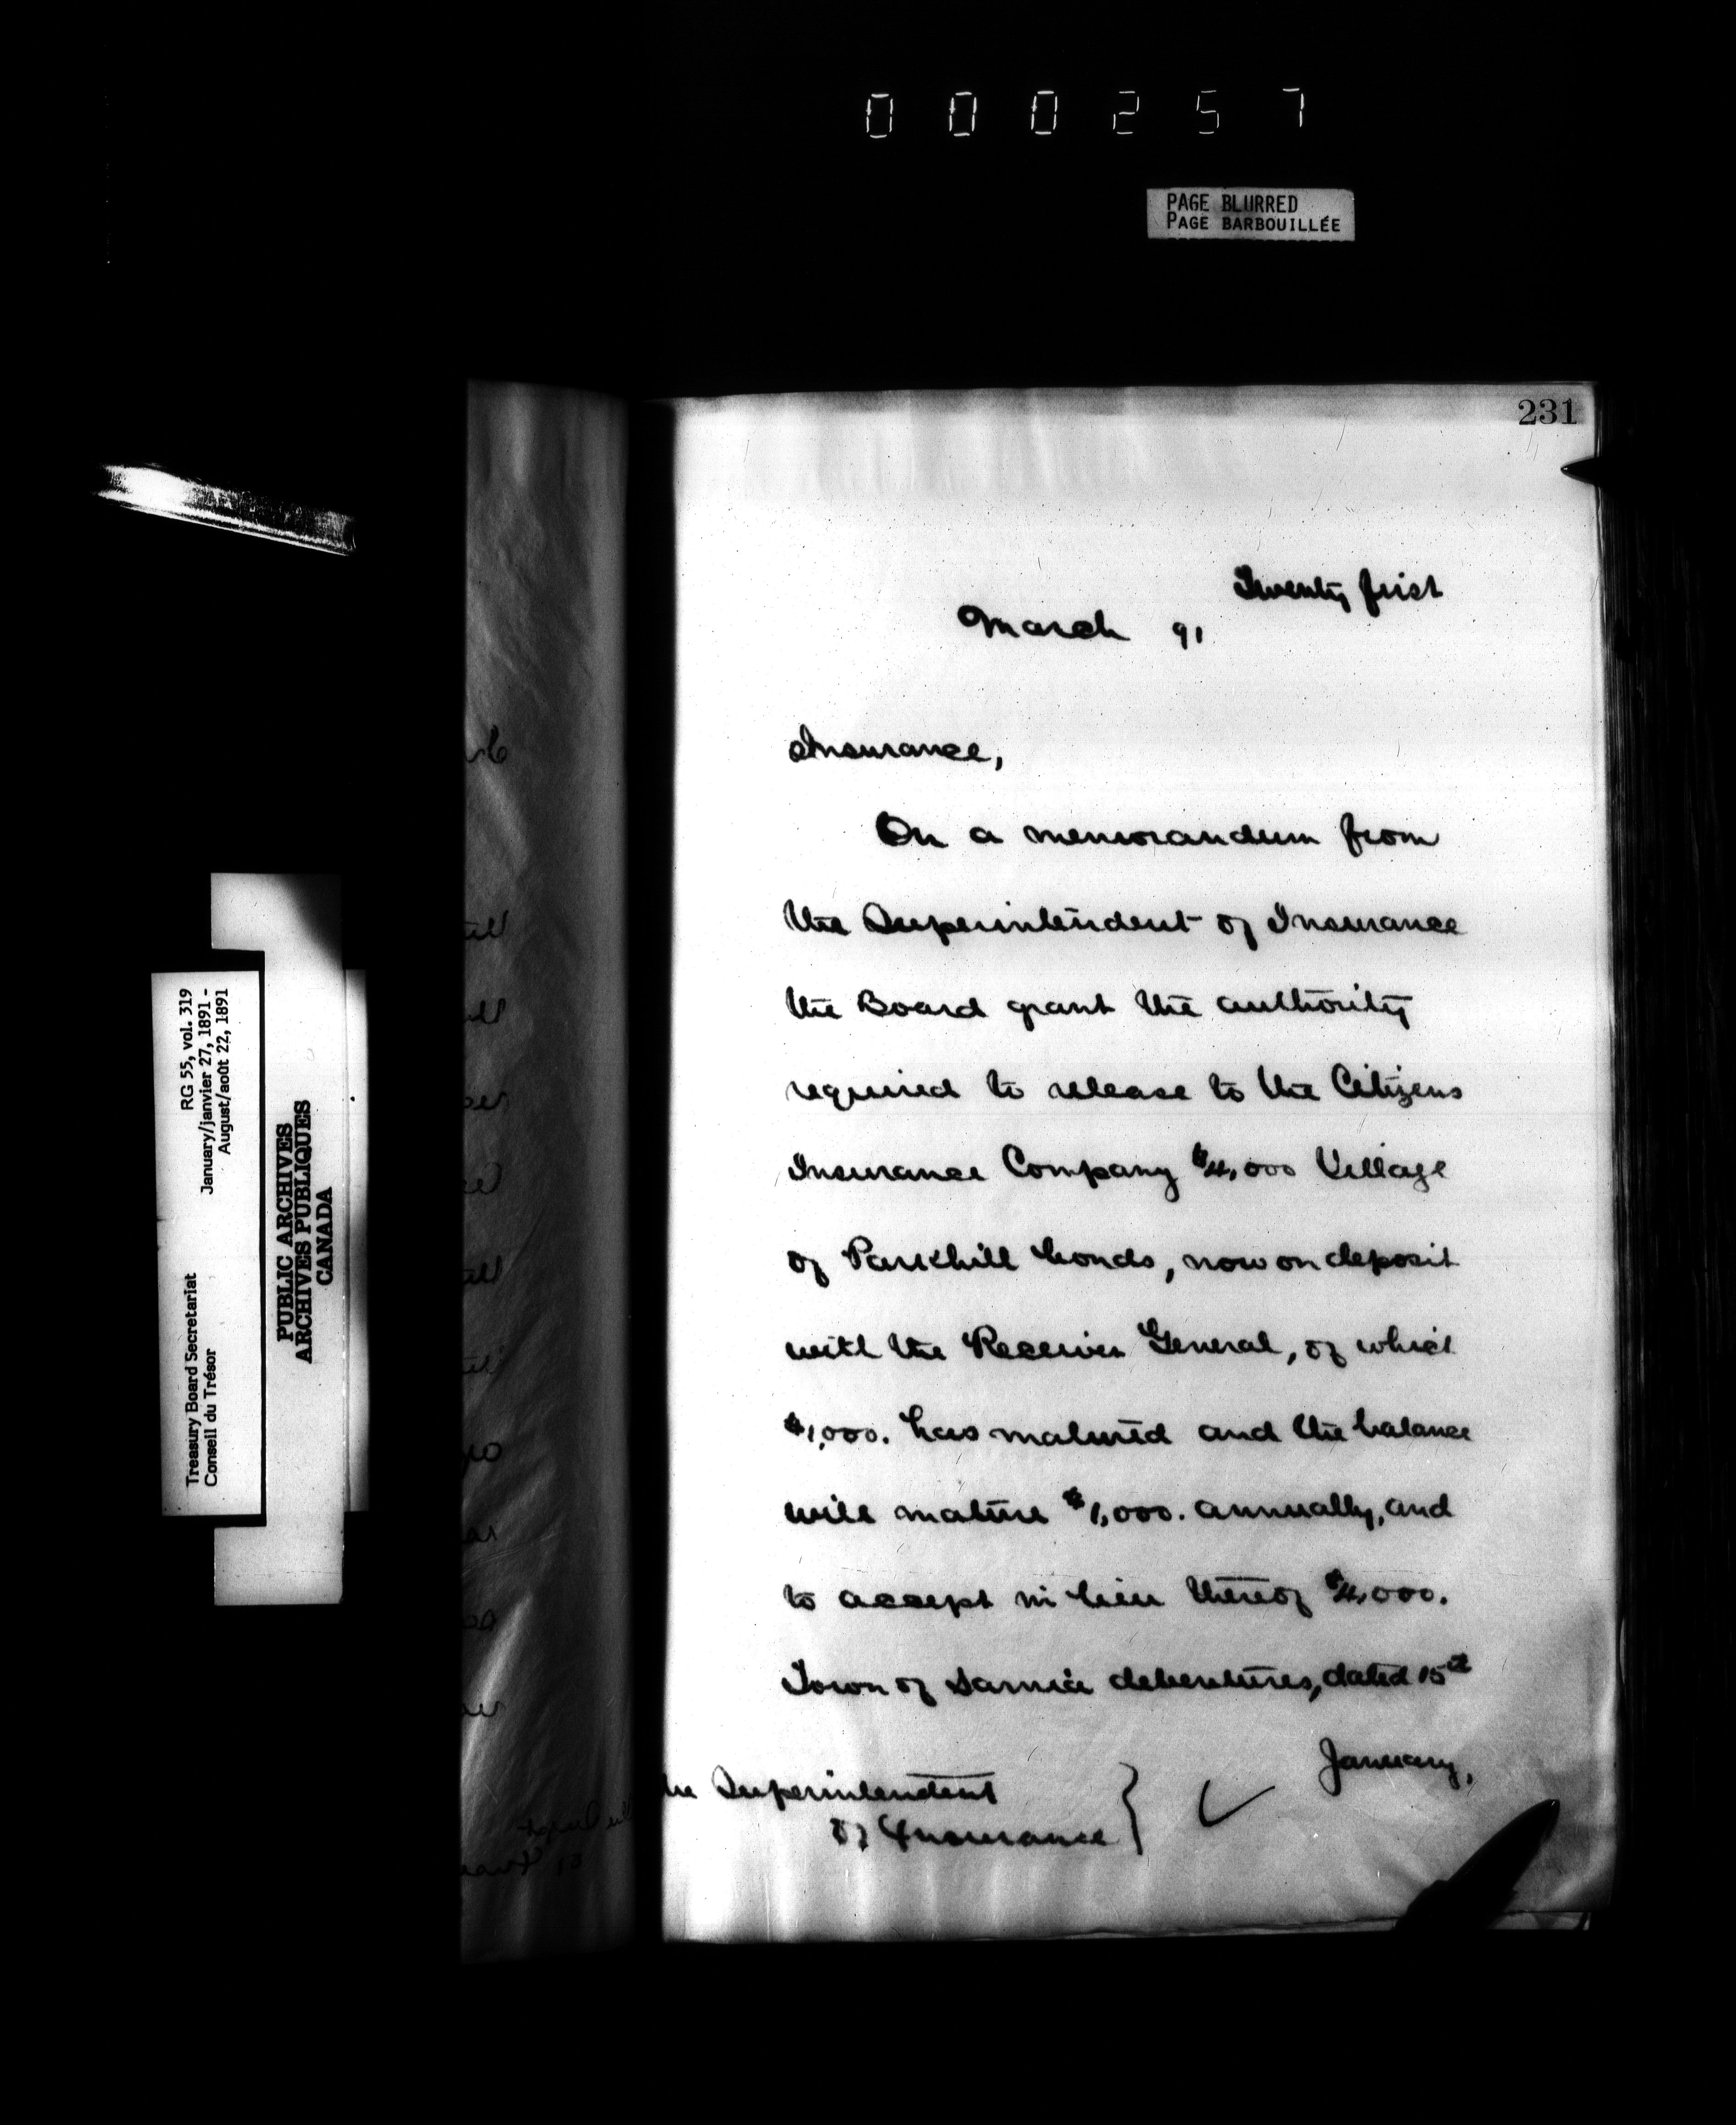 000257
PAGE BLURRED
PAGE BARBOUILLÉE
231
Twenty first
March 91
Insurance,
On a memorandum from
the Superintendent of Insurance
the Board grant the authority
required to release to the Citizens
Insurance Company $4,000 Village
of Parkhill bonds, now on deposit
with the Receiver General, of which
$1,000. has matured and the balance
will mature $1,000. annually, and
to accept in lieu thereof $4,000.
Town of Sarnia debentures, dated 15th
January,
he Superintendent
of Insurance
RG 55, vol. 319
January/janvier 27, 1891 -
August/août 22, 1891
Treasury Board Secretariat
Conseil du Trésor
PUBLIC ARCHIVES
ARCHIVES PUBLIQUES
CANADA